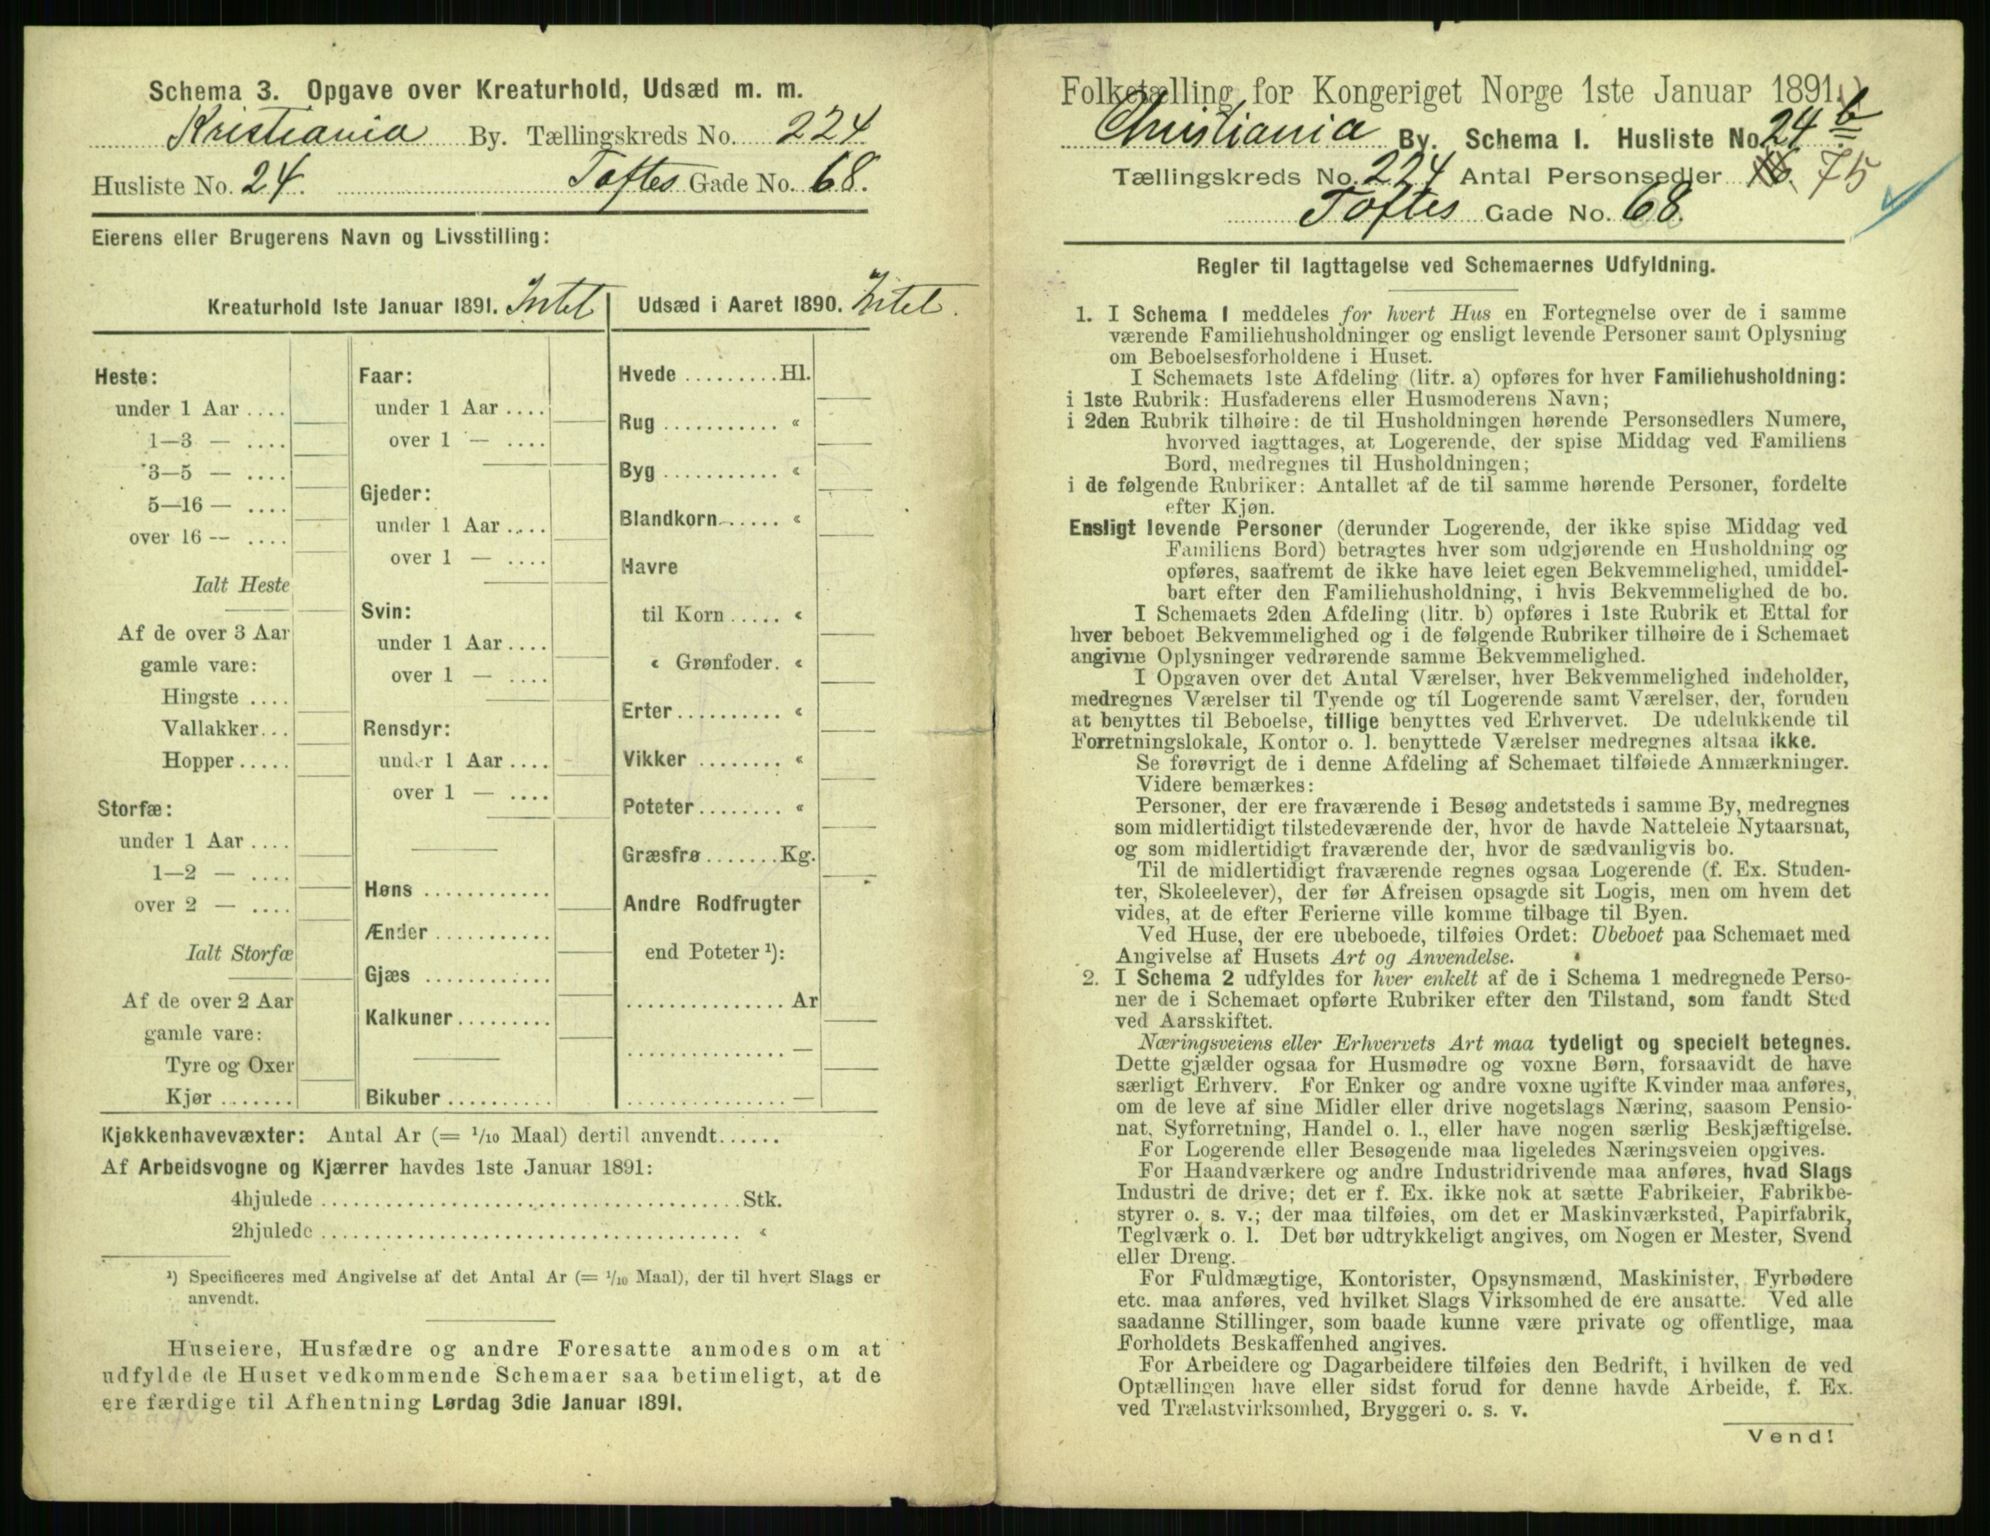 Schema 3. Opgave over Kreaturhold, Udsæd m. m.
Kristiania By. Tællingskreds No. 224
Husliste No. 24. Toftes Gade No. 68.
Eierens eller Brugerens Navn og Livsstilling:
Kreaturhold 1ste Januar 1891. Intet
Heste:
under 1 Aar ....
1—3 — ....
3—5 — ....
5—16 — ....
over 16 — ....
Ialt Heste
Af de over 3 Aar
gamle vare:
Hingste ....
Vallakker...
Hopper.....
Storfæ:
under 1 Aar ....
1—2 — ....
over 2 — ....
Ialt Storfæ
Af de over 2 Aar
gamle vare:
Tyre og Oxer
Kjør .......
Faar:
under 1 Aar ....
over 1 — ....
Gjeder:
under 1 Aar ....
over 1 — ....
Svin:
under 1 Aar ....
over 1 — ....
Rensdyr:
under 1 Aar ....
over 1 — ....
Høns ............
Ænder ...........
Gjæs ............
Kalkuner.........
Bikuber ..........
Udsæd i Aaret 1890. Intet.
Hvede .........Hl.
Rug ........... «
Byg ........... «
Blandkorn...... «
Havre
til Korn ..... «
« Grønfoder. «
Erter.......... «
Vikker ........ «
Poteter........ «
Græsfrø.......Kg.
Andre Rodfrugter
end Poteter ¹):
............... Ar
............... —
............... —
Kjøkkenhavevæxter: Antal Ar (= 1/10 Maal) dertil anvendt......
Af Arbeidsvogne og Kjærrer havdes 1ste Januar 1891:
4hjulede ......................................Stk.
2hjulede ...................................... «
¹) Specificeres med Angivelse af det Antal Ar (= 1/10 Maal), der til hvert Slags er
anvendt.
Huseiere, Husfædre og andre Foresatte anmodes om at
udfylde de Huset vedkommende Schemaer saa betimeligt, at de
ere færdige til Afhentning Lørdag 3die Januar 1891.
Folketælling for Kongeriget Norge 1ste Januar 1891.
Christiania By. Schema I. Husliste No. 24 b
Tællingskreds No. 224 Antal Personsedler 75
Toftes Gade No. 68.
Regler til Iagttagelse ved Schemaernes Udfyldning.
1. I Schema 1 meddeles for hvert Hus en Fortegnelse over de i samme
værende Familiehusholdninger og ensligt levende Personer samt Oplysning
om Beboelsesforholdene i Huset.
I Schemaets 1ste Afdeling (litr. a) opføres for hver Familiehusholdning:
i 1ste Rubrik: Husfaderens eller Husmoderens Navn;
i 2den Rubrik tilhøire: de til Husholdningen hørende Personsedlers Numere,
hvorved iagttages, at Logerende, der spise Middag ved Familiens
Bord, medregnes til Husholdningen;
i de følgende Rubriker: Antallet af de til samme hørende Personer, fordelte
efter Kjøn.
Ensligt levende Personer (derunder Logerende, der ikke spise Middag ved
Familiens Bord) betragtes hver som udgjørende en Husholdning og
opføres, saafremt de ikke have leiet egen Bekvemmelighed, umiddel-
bart efter den Familiehusholdning, i hvis Bekvemmelighed de bo.
I Schemaets 2den Afdeling (litr. b) opføres i 1ste Rubrik et Ettal for
hver beboet Bekvemmelighed og i de følgende Rubriker tilhøire de i Schemaet
angivne Oplysninger vedrørende samme Bekvemmelighed.
I Opgaven over det Antal Værelser, hver Bekvemmelighed indeholder,
medregnes Værelser til Tyende og til Logerende samt Værelser, der, foruden
at benyttes til Beboelse, tillige benyttes ved Erhvervet. De udelukkende til
Forretningslokale, Kontor o. l. benyttede Værelser medregnes altsaa ikke.
Se forøvrigt de i denne Afdeling af Schemaet tilføiede Anmærkninger.
Videre bemærkes:
Personer, der ere fraværende i Besøg andetsteds i samme By, medregnes
som midlertidigt tilstedeværende der, hvor de havde Natteleie Nytaarsnat,
og som midlertidigt fraværende der, hvor de sædvanligvis bo.
Til de midlertidigt fraværende regnes ogsaa Logerende (f. Ex. Studen-
ter, Skoleelever), der før Afreisen opsagde sit Logis, men om hvem det
vides, at de efter Ferierne ville komme tilbage til Byen.
Ved Huse, der ere ubeboede, tilføies Ordet: Ubeboet paa Schemaet med
Angivelse af Husets Art og Anvendelse.
2. I Schema 2 udfyldes for hver enkelt af de i Schema 1 medregnede Perso-
ner de i Schemaet opførte Rubriker efter den Tilstand, som fandt Sted
ved Aarsskiftet.
Næringsveiens eller Erhvervets Art maa tydeligt og specielt betegnes.
Dette gjælder ogsaa for Husmødre og voxne Børn, forsaavidt de have
særligt Erhverv. For Enker og andre voxne ugifte Kvinder maa anføres,
om de leve af sine Midler eller drive nogetslags Næring, saasom Pensio-
nat, Syforretning, Handel o. l., eller have nogen særlig Beskjæftigelse.
For Logerende eller Besøgende maa ligeledes Næringsveien opgives.
For Haandværkere og andre Industridrivende maa anføres, hvad Slags
Industri de drive; det er f. Ex. ikke nok at sætte Fabrikeier, Fabrikbe-
styrer o. s. v.; der maa tilføies, om det er Maskinværksted, Papirfabrik,
Teglværk o. l. Det bør udtrykkeligt angives, om Nogen er Mester, Svend
eller Dreng.
For Fuldmægtige, Kontorister, Opsynsmænd, Maskinister, Fyrbødere
etc. maa anføres, ved hvilket Slags Virksomhed de ere ansatte. Ved alle
saadanne Stillinger, som baade kunne være private og offentlige, maa
Forholdets Beskaffenhed angives.
For Arbeidere og Dagarbeidere tilføies den Bedrift, i hvilken de ved
Optællingen have eller sidst forud for denne havde Arbeide, f. Ex.
ved Trælastvirksomhed, Bryggeri o. s. v.
Vend!